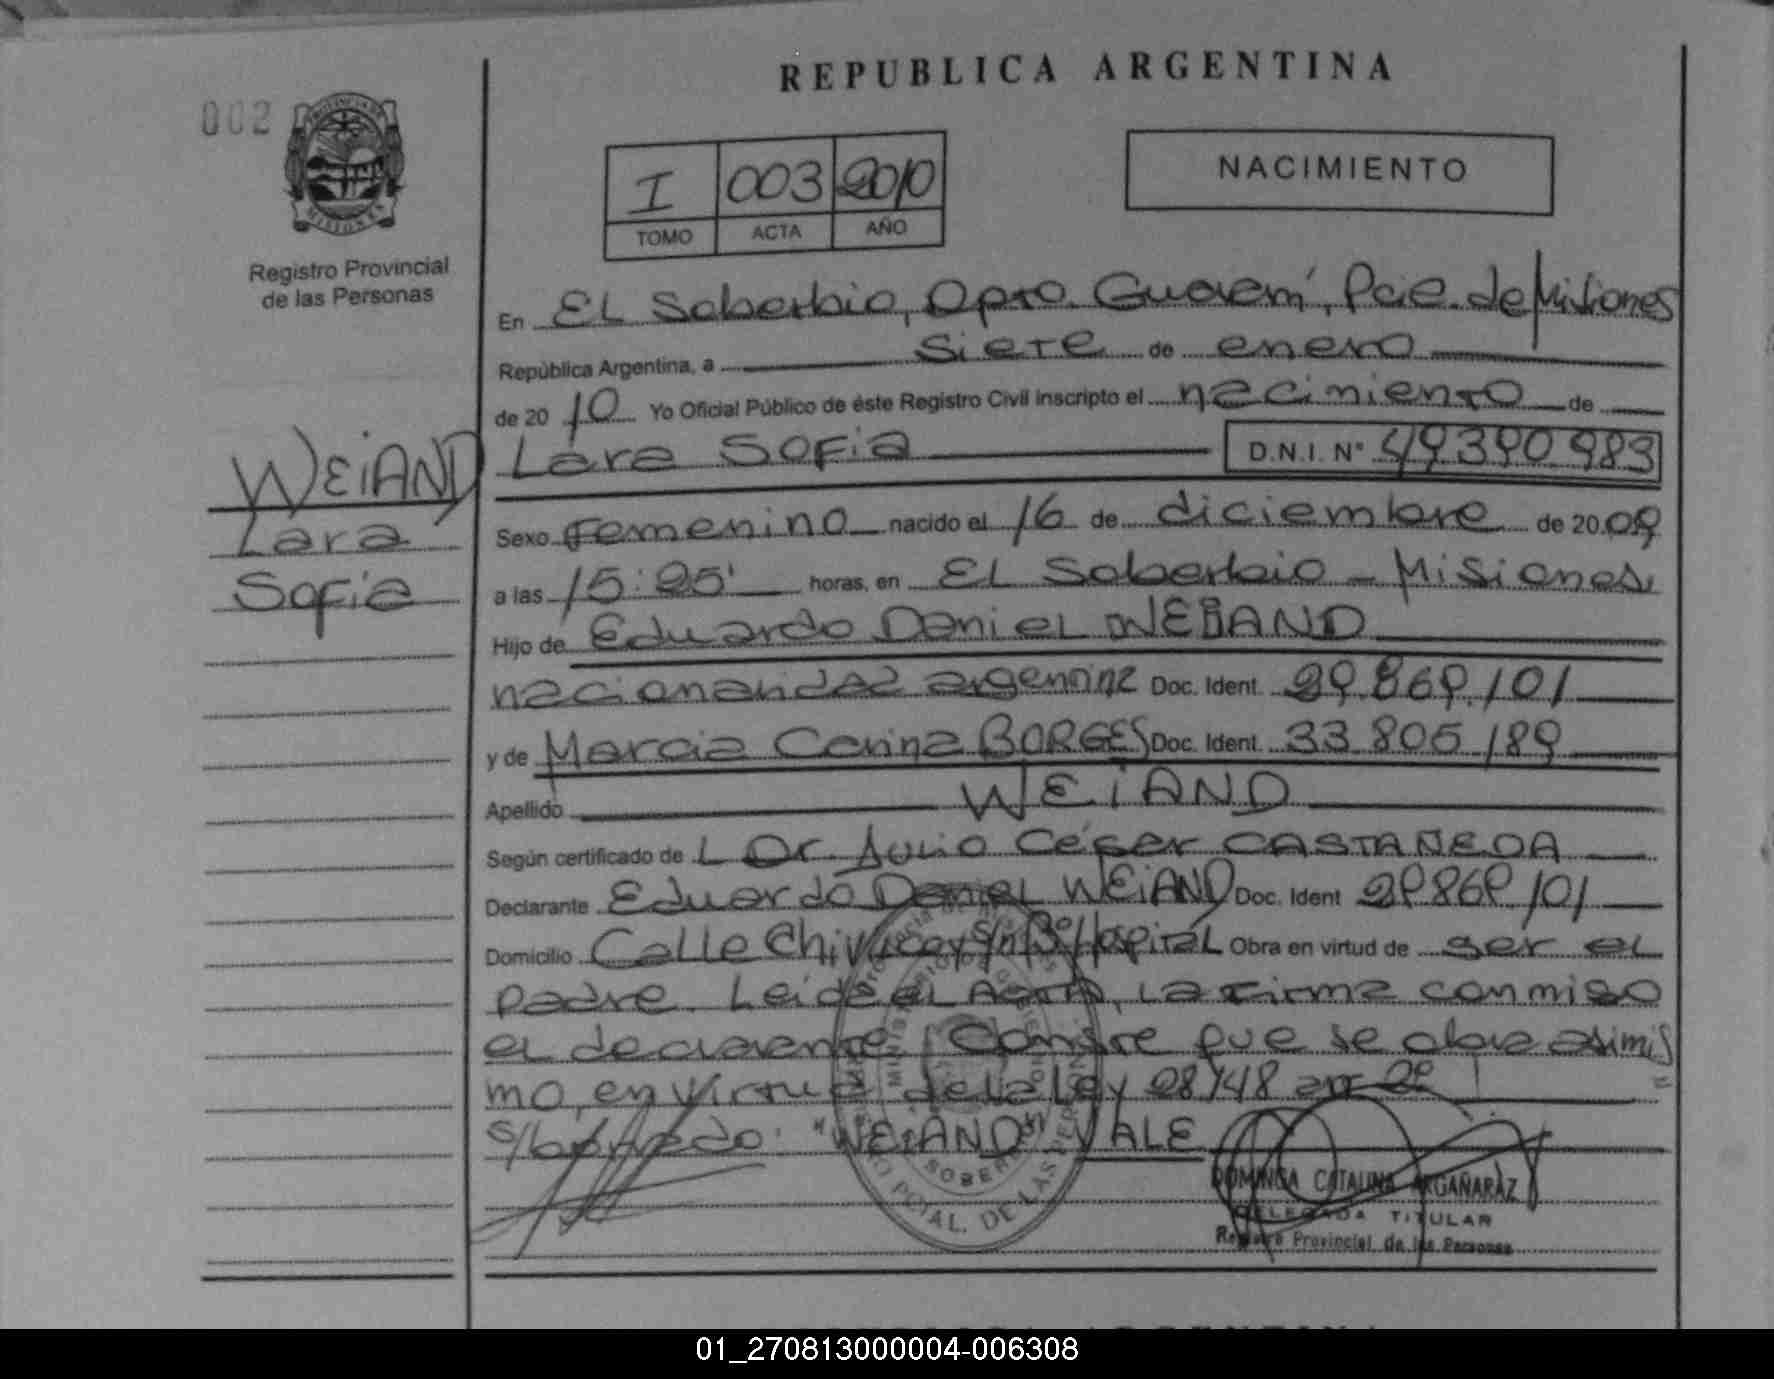 REPUBLICA ARGENTINA
002
I 003 2010
TOMO ACTA AÑO
NACIMIENTO
Registro Provincial
de las Personas
En EL Soberbio, Dpto. Guaraní, Pcia. de Misiones
República Argentina, a siete de enero
de 20 10 Yo Oficial Público de éste Registro Civil inscripto el nacimiento de
Lara Sofia D.N.I. N° 49390983
WEiAND
Lara
Sofia
Sexo femenino nacido el 16 de diciembre de 2009
a las 15:25' horas, en EL Soberbio - Misiones,
Hijo de Eduardo Daniel WEIAND
nacionalidad argentina Doc. Ident. 29.869.101
y de Marcia Carina BORGES Doc. Ident. 33.805.189
Apellido WEiAND
Según certificado de L Dr. Julio César CASTAÑEDA
Declarante Eduardo Daniel WEiAND Doc. Ident 29869101
Domicilio Calle Chivilcoy S/n B° Hospital Obra en virtud de ser el
padre. Leida el Acta, la firma conmigo
el declarante. Conste que se obra asimis
mo, en virtud de la Ley 18248 art 2°
s/borrado: "WEiAND" VALE
DOMINGA CATALINA ARGAÑARAZ
DELEGADA TITULAR
Registro Provincial de las Personas
01_270813000004-006308